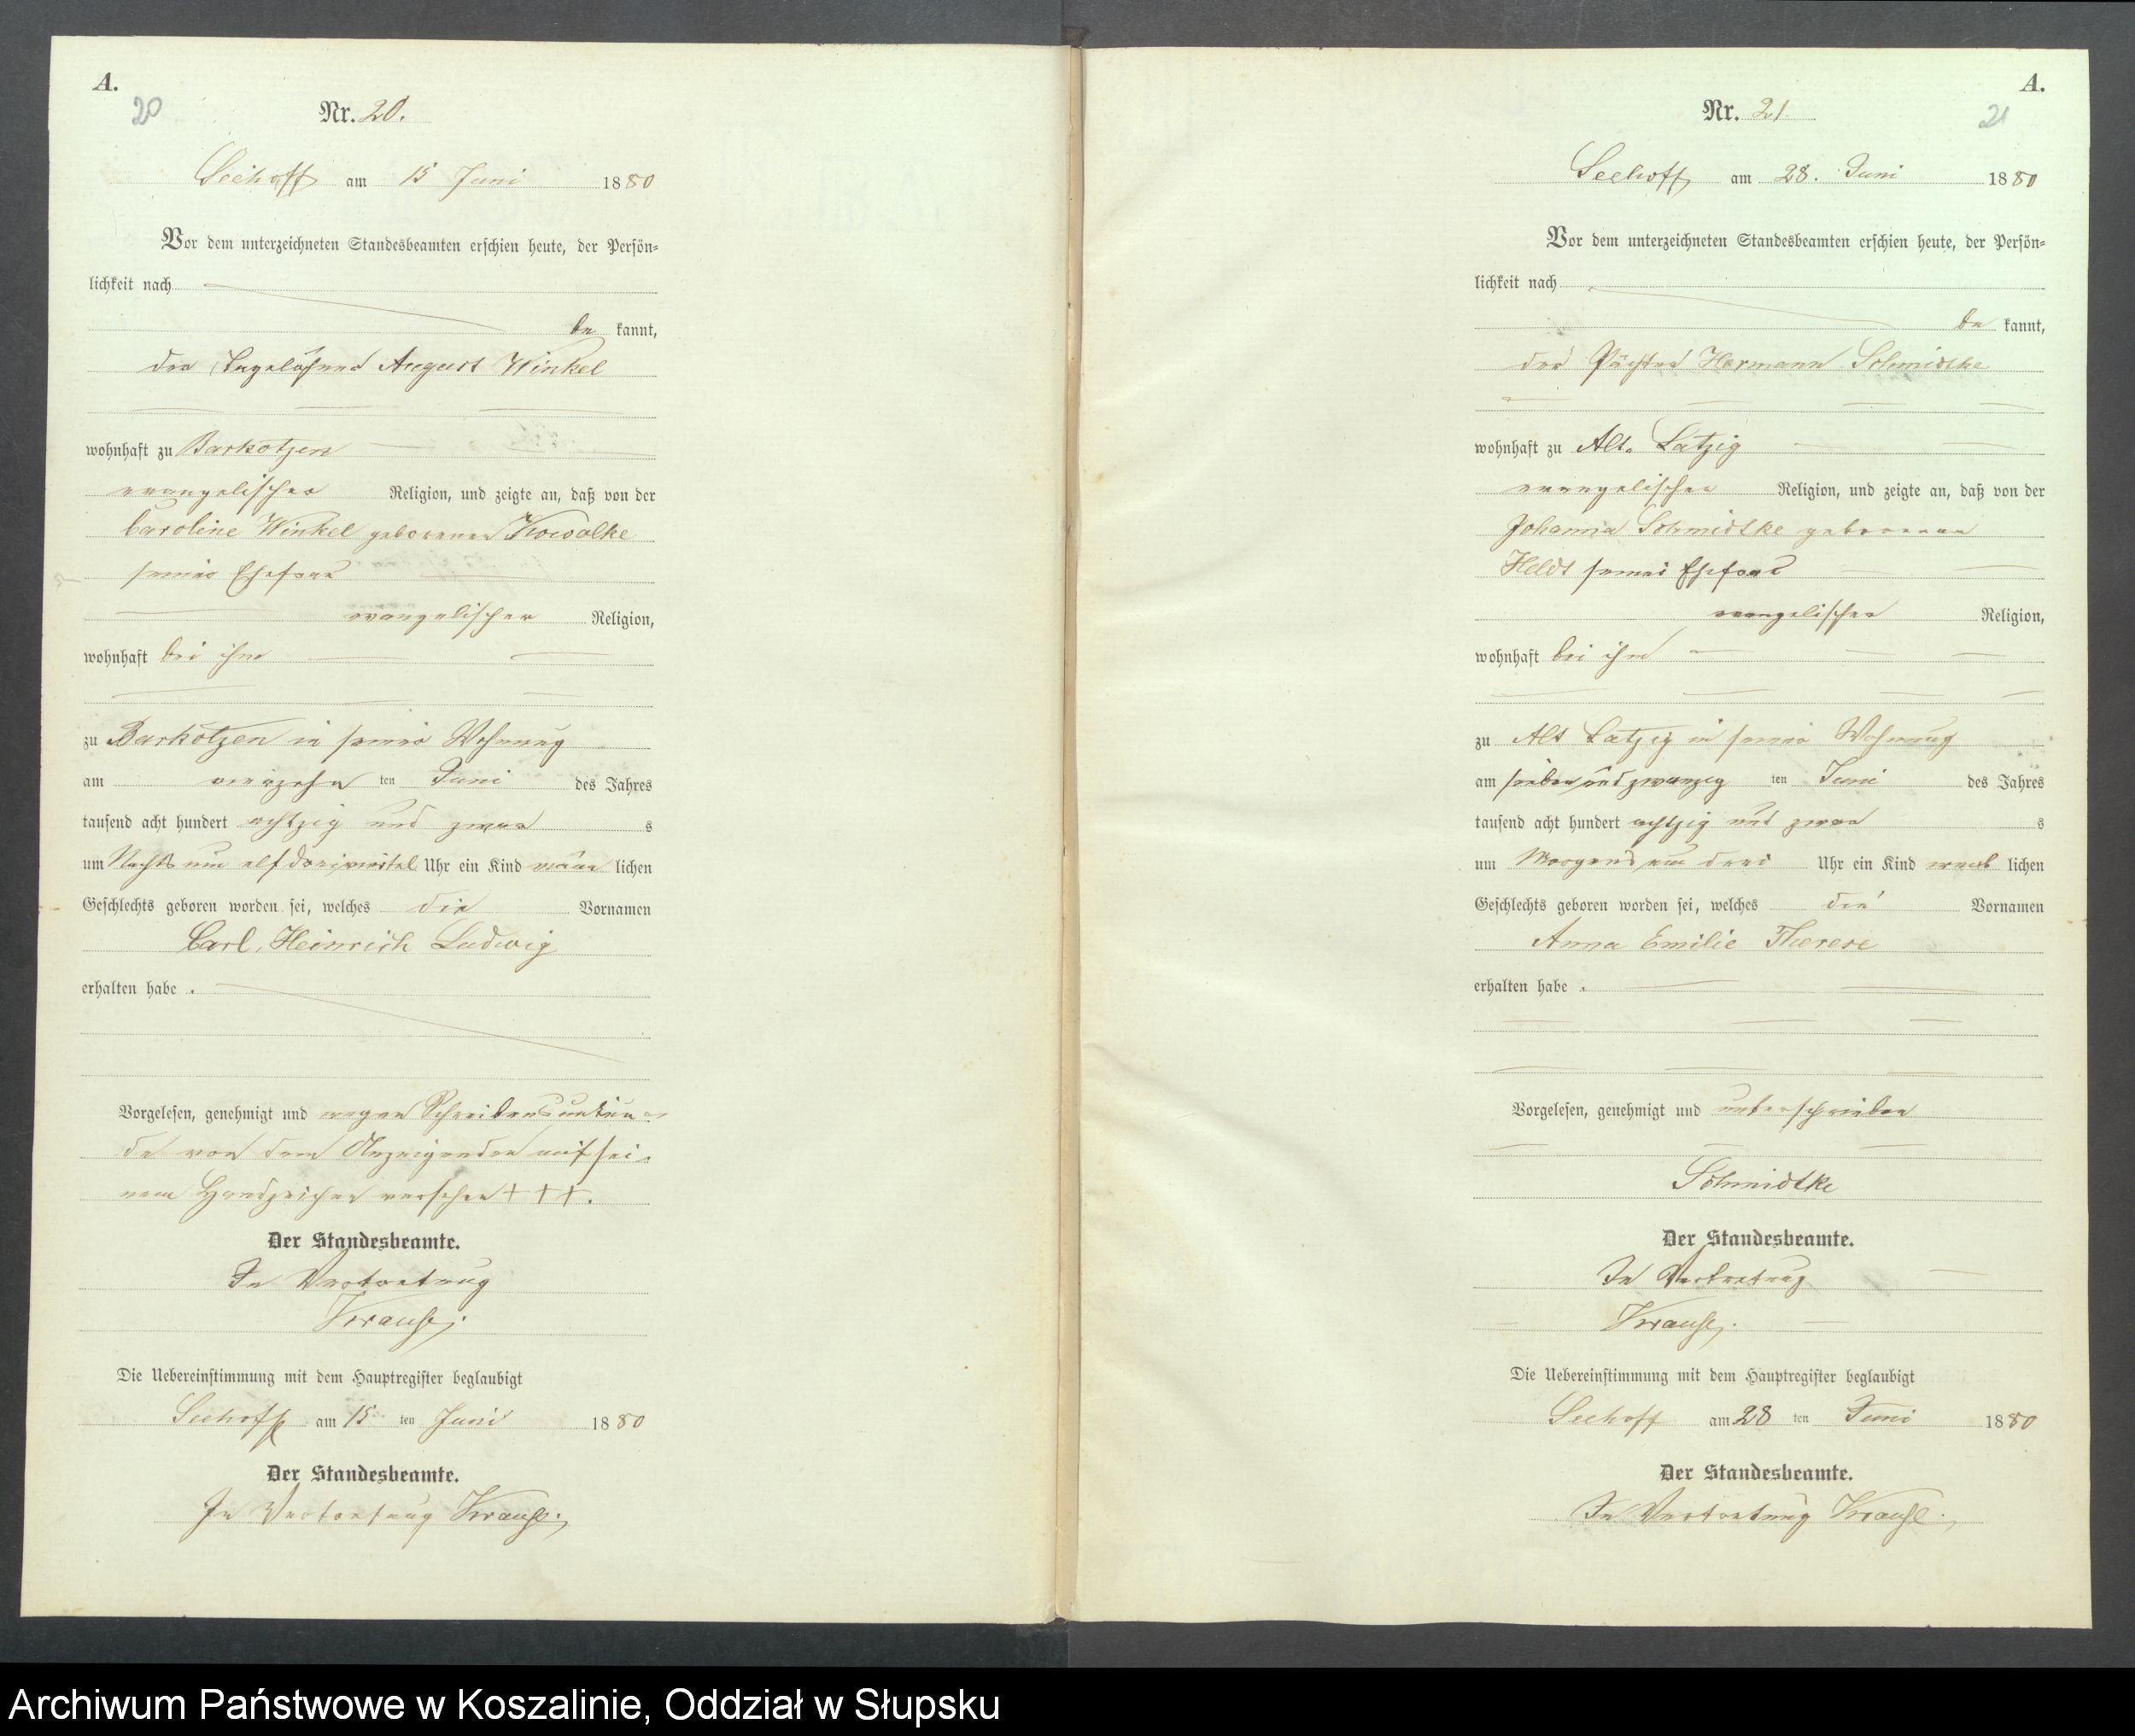 A.
20
Nr. 20.
Seehoff am 15 Juni 1880
Vor dem unterzeichneten Standesbeamten erschien heute, der Persön-
lichkeit nach
be kannt,
der Tagelöhner August Winkel
wohnhaft zu Barkotzen
evangelischer Religion, und zeigte an, daß von der
Caroline Winkel geborenen Kowalke
seiner Ehefrau
evangelischer Religion,
wohnhaft bei ihm
zu Barkotzen in seiner Wohnung
am vierzehn ten Juni des Jahres
tausend acht hundert achtzig und zwar s
um Nachts um elf dreiviertel Uhr ein Kind männ lichen
Geschlechts geboren worden sei, welches die Vornamen
Carl, Heinrich Ludwig
erhalten habe.
Vorgelesen, genehmigt und wegen Schreibensunkun-
de von dem Anzeigenden mit sei-
nem Handzeichen versehen + + +.
Der Standesbeamte.
In Vertretung
Krause.
Die Uebereinstimmung mit dem Hauptregister beglaubigt
Seehoff am 15 ten Juni 1880
Der Standesbeamte.
In Vertretung Krause.
A.
21
Nr. 21.
Seehoff am 28. Juni 1880
Vor dem unterzeichneten Standesbeamten erschien heute, der Persön-
lichkeit nach
be kannt,
der Pächter Hermann Schmidtke
wohnhaft zu Alt. Latzig
evangelischer Religion, und zeigte an, daß von der
Johanna Schmidtke geborenen
Heldt seiner Ehefrau
evangelischer Religion,
wohnhaft bei ihm
zu Alt Latzig in seiner Wohnung
am sieben und zwanzig ten Juni des Jahres
tausend acht hundert achtzig und zwar s
um Morgens um drei Uhr ein Kind weib lichen
Geschlechts geboren worden sei, welches die Vornamen
Anna Emilie Therese
erhalten habe.
Vorgelesen, genehmigt und unterschrieben
Schmidtke
Der Standesbeamte.
In Vertretung
Krause.
Die Uebereinstimmung mit dem Hauptregister beglaubigt
Seehoff am 28 ten Juni 1880
Der Standesbeamte.
In Vertretung Krause.
Archiwum Państwowe w Koszalinie, Oddział w Słupsku